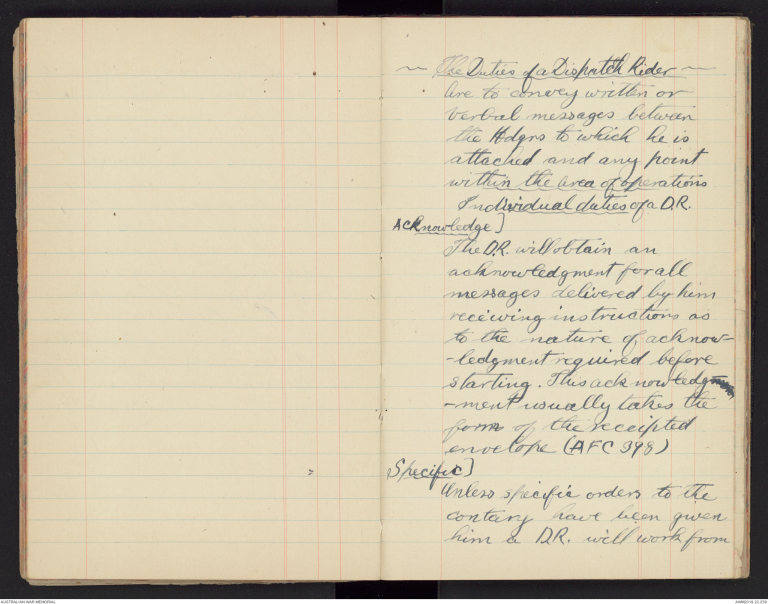 ~ The Duties of a Dispatch Rider ~
Are to convey written or
verbal messages between
the Hdqrs to which he is
attached and any point
within the area of operations
Individual duties of a D.R.
Acknowledge]
The D.R. will obtain an
acknowledgment for all
messages delivered by him
receiving instructions as
to the nature of acknow-
-ledgment required before
starting. This acknowledg
-ment usually takes the
form of the receipted
envelope (AFC 398)
Specific]
Unless specific orders to the
contary have been given
him a D.R. will work from
AUSTRALIAN WAR MEMORIAL